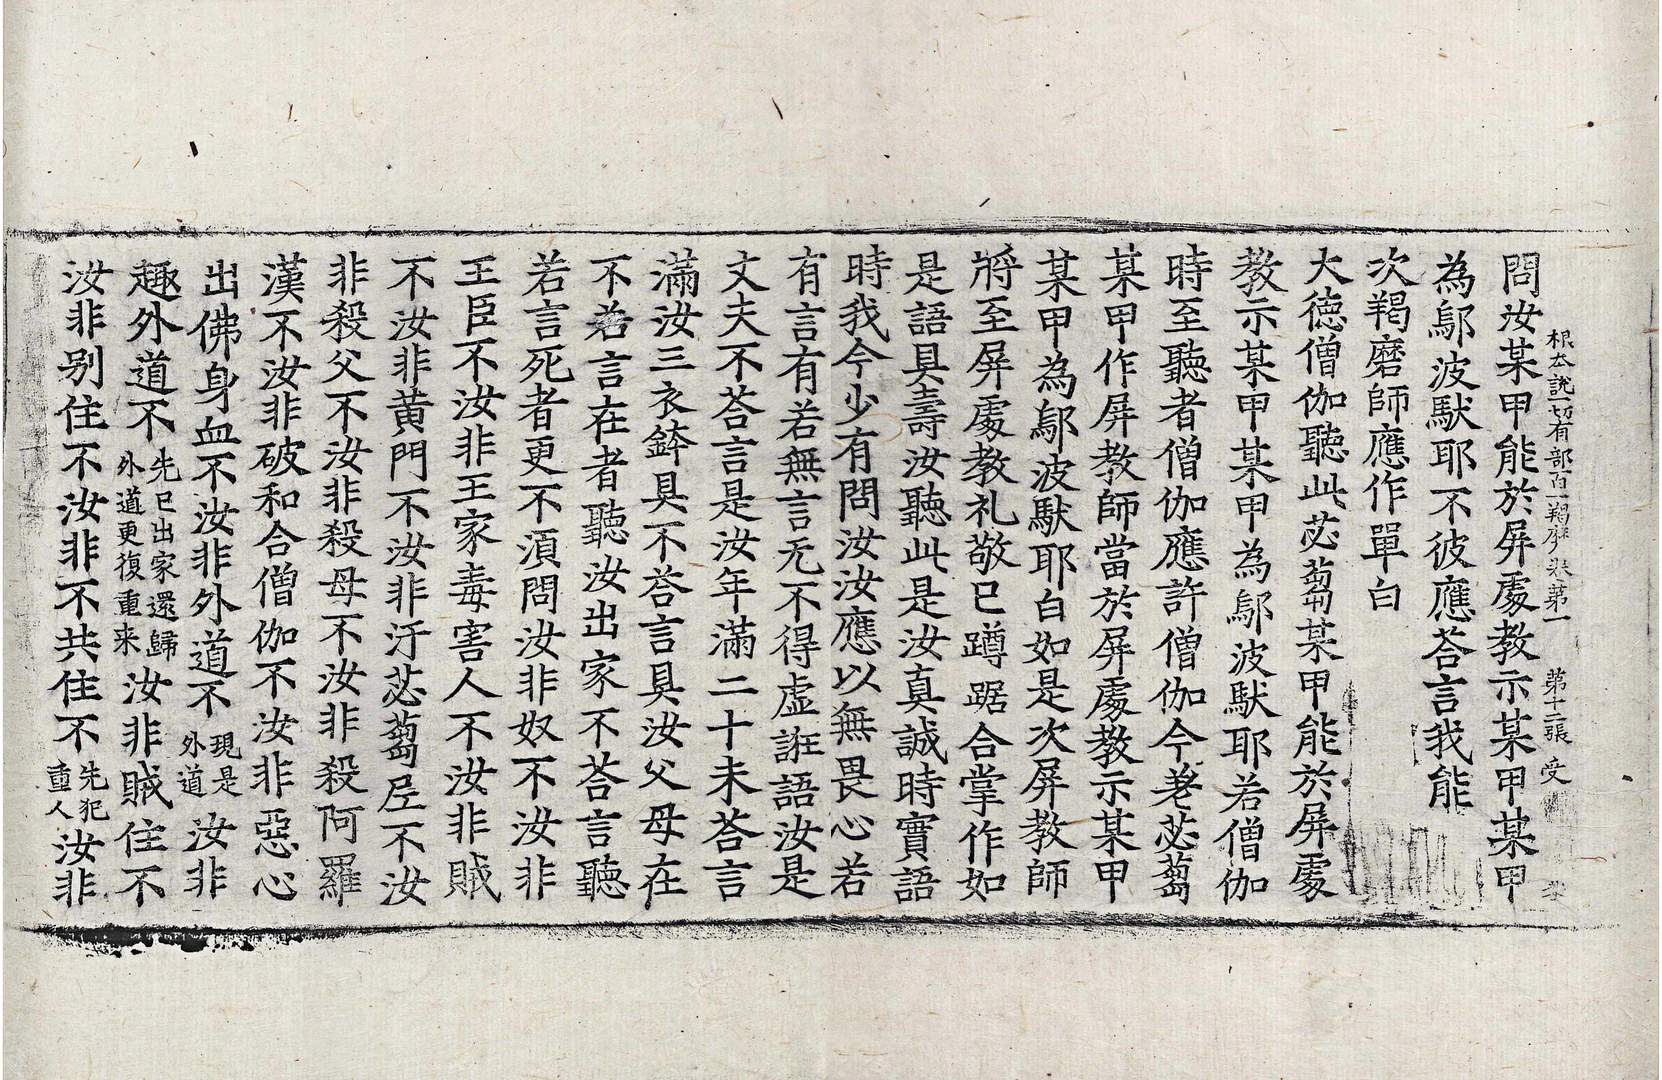 根夲說一切有部百一羯磨卷第一 第十二張 受
問汝某甲能於屏處教示某甲某甲
為鄔波馱耶不彼應荅言我能
次羯磨師應作單白
大德僧伽聽此苾蒭某甲能於屏處
教示某甲某甲為鄔波馱耶若僧伽
時至聽者僧伽應許僧伽今差苾蒭
某甲作屏教師當於屏處教示某甲
某甲為鄔波馱耶白如是次屏教師
將至屏處教礼敬已蹲踞合掌作如
是語具壽汝聽此是汝真誠時實語
時我今少有問汝汝應以無畏心若
有言有若無言无不得虛誑語汝是
丈夫不荅言是汝年滿二十未荅言
滿汝三衣鉢具不荅言具汝父母在
不若言在者聽汝出家不荅言聽
若言死者更不須問汝非奴不汝非
王臣不汝非王家毒害人不汝非賊
不汝非黃門不汝非汙苾蒭尼不汝
非殺父不汝非殺母不汝非殺阿羅
漢不汝非破和合僧伽不汝非惡心
出佛身血不汝非外道不現是外道汝非
趣外道不先已出家還歸外道更復重来汝非賊住不
汝非別住不汝非不共住不先犯重人汝非